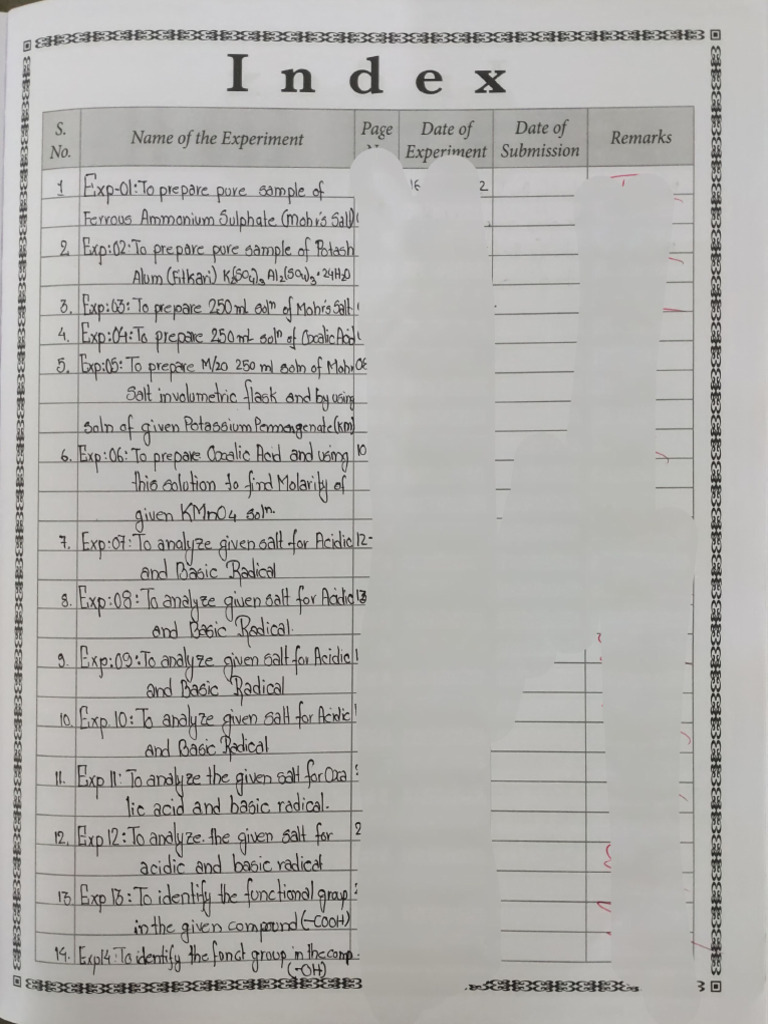 Index
S. No. Name of the Experiment Page Date of Experiment Date of Submission Remarks
1 Exp-01: To prepare pure sample of 16 2
Ferrous Ammonium Sulphate (Mohr's Salt)
2 Exp:02: To prepare pure sample of Potash
Alum (Fitkari) K2(SO4)3 Al2(SO4)3·24H2O
3. Exp:03: To prepare 250ml soln of Mohr's Salt
4. Exp:04: To prepare 250ml soln of Oxalic Acid
5. Exp:05: To prepare M/20 250 ml soln of Mohr
Salt involumetric flask and by using
soln of given Potassium Permangenate (KM)
6. Exp:06: To prepare Oxalic Acid and using 10
this solution to find Molarity of
given KMnO4 soln.
7. Exp:07: To analyze given salt for Acidic 12-
and Basic Radical
8. Exp:08: To analyze given salt for Acidic 13
and Basic Radical.
9. Exp:09: To analyze given salt for Acidic
and Basic Radical
10. Exp 10: To analyze given salt for Acidic
and Basic Radical
11. Exp 11: To analyze the given salt for Oxa
lic acid and basic radical.
12. Exp 12: To analyze the given salt for 2
acidic and basic radical
13. Exp 13: To identify the functional group
in the given compound (-COOH)
14. Exp14: To identify the fonct group in the comp.
(-OH)